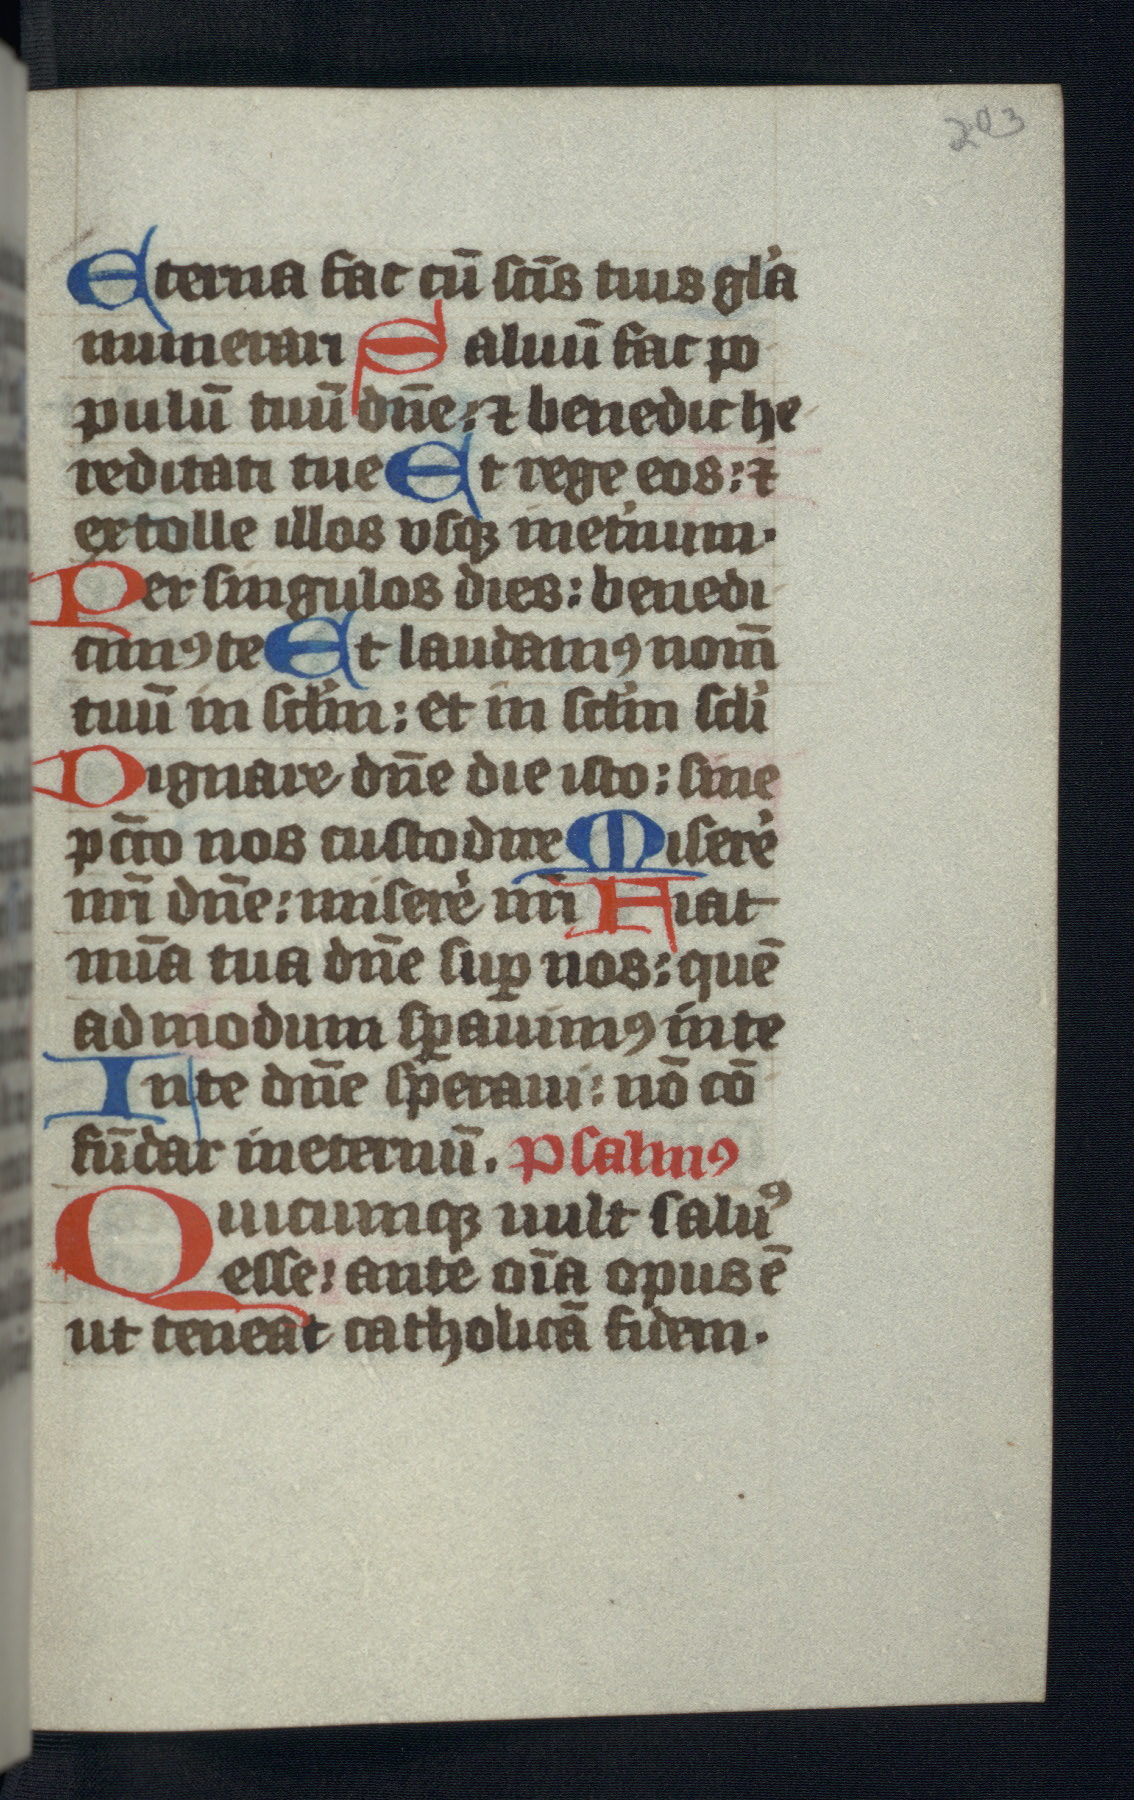 203
Eterna fac cū sc̄is tuis gl'a
numerari Saluū fac po
pulū tuū dn̄e: ⁊ benedic he
reditati tue Et rege eos: ⁊
extolle illos vsqꝫ inet'num.
Per singulos dies: benedi
cimꝰ te Et laudamꝰ nom̄
tuū in sc̄l'm: et in sc̄l'm sc̄l'i
Dignare dn̄e die isto: sine
pc̄cto nos custodire Miserē
nr̄i dn̄e: miserē nr̄i Fiat
mīa tua dn̄e suꝑ nos: quē
admodum sꝑauimꝰ in te
In te dn̄e speraui: nō cō
fūdar ineternū. Psalmꝰ
Quicumqꝫ uult saluꝰ
esse: ante oīa opus ē
ut teneat catholicā fidem.